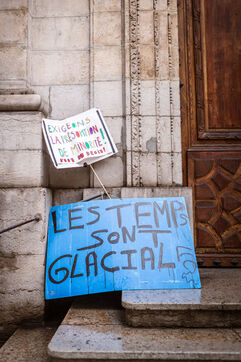 EXIGEONS
LA PRÉSOMTION
DE MINORITÉ!
LES TEMPS
SONT
GLACIAL